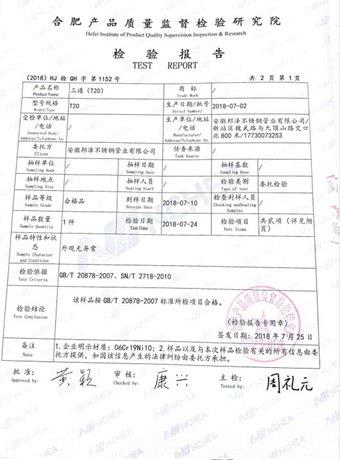 合肥产品质量监督检验研究院
Hefei Institute of Product Quality Supervision Inspection & Research
检 验 报 告
TEST REPORT
(2018) HJ 检 QH 字 第 1152 号 共 2 页 第 1 页
产品名称 Product Name 三通 (T20) 商标 Trade Mark /
型号规格 Model/Type T20 生产日期/批号 Serial Number/ 2018-07-02
受检单位/地址/电话 生产单位/地址/电话 Manufacturer/Address/Telephone 安徽邦泽不锈钢管业有限公司/
委托方 Client 安徽邦泽不锈钢管业有限公司 任务来源 Task Source /
抽样单位 Sampling Body / 抽样日期 Sampling Date / 抽样基数 /
抽样地点 Sampling Site / 抽样人员 Sampling Staff / 检验类别 Type of Test 委托检验
样品等级 Sample Grade 合格品 到样日期 Received Date 2018-07-10 检查封样人员 /
样品数量 Sample Quantity 1 件 检验日期 Test Date 2018-07-24 检验项目 Test Items 共贰项(详见附页)
样品特性和状态 Sample Character and Condition 外观无异常
检验依据 Test Criteria GB/T 20878-2007、SN/T 2718-2010
检验结论 Test Conclusion 该样品按 GB/T 20878-2007 标准所检项目合格。
(检验报告专用章)
签发日期: 2018 年 7 月 25 日
备注 Note 1.企业明示材质: 06Cr19Ni10; 2.样品以及与本次样品检验有关的所有信息由委
托方提供, 如因该信息产生的法律纠纷由委托方承担。
批准: Approved by: 审核: Checked by: 康兴 主检: Tested by: 周礼元